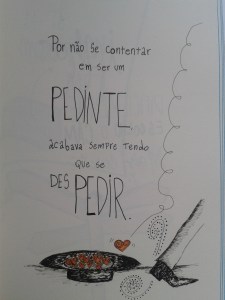 Por não se contentar
em ser um
PEDINTE,
acabava sempre tendo
que se
DESPEDIR.